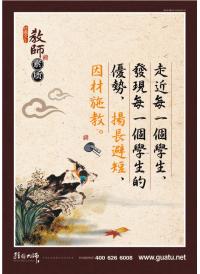 教師
素质
走近每一個學生、
發現每一個學生的
優勢，揚長避短、
因材施教。
400 626 6008
www.guatu.net